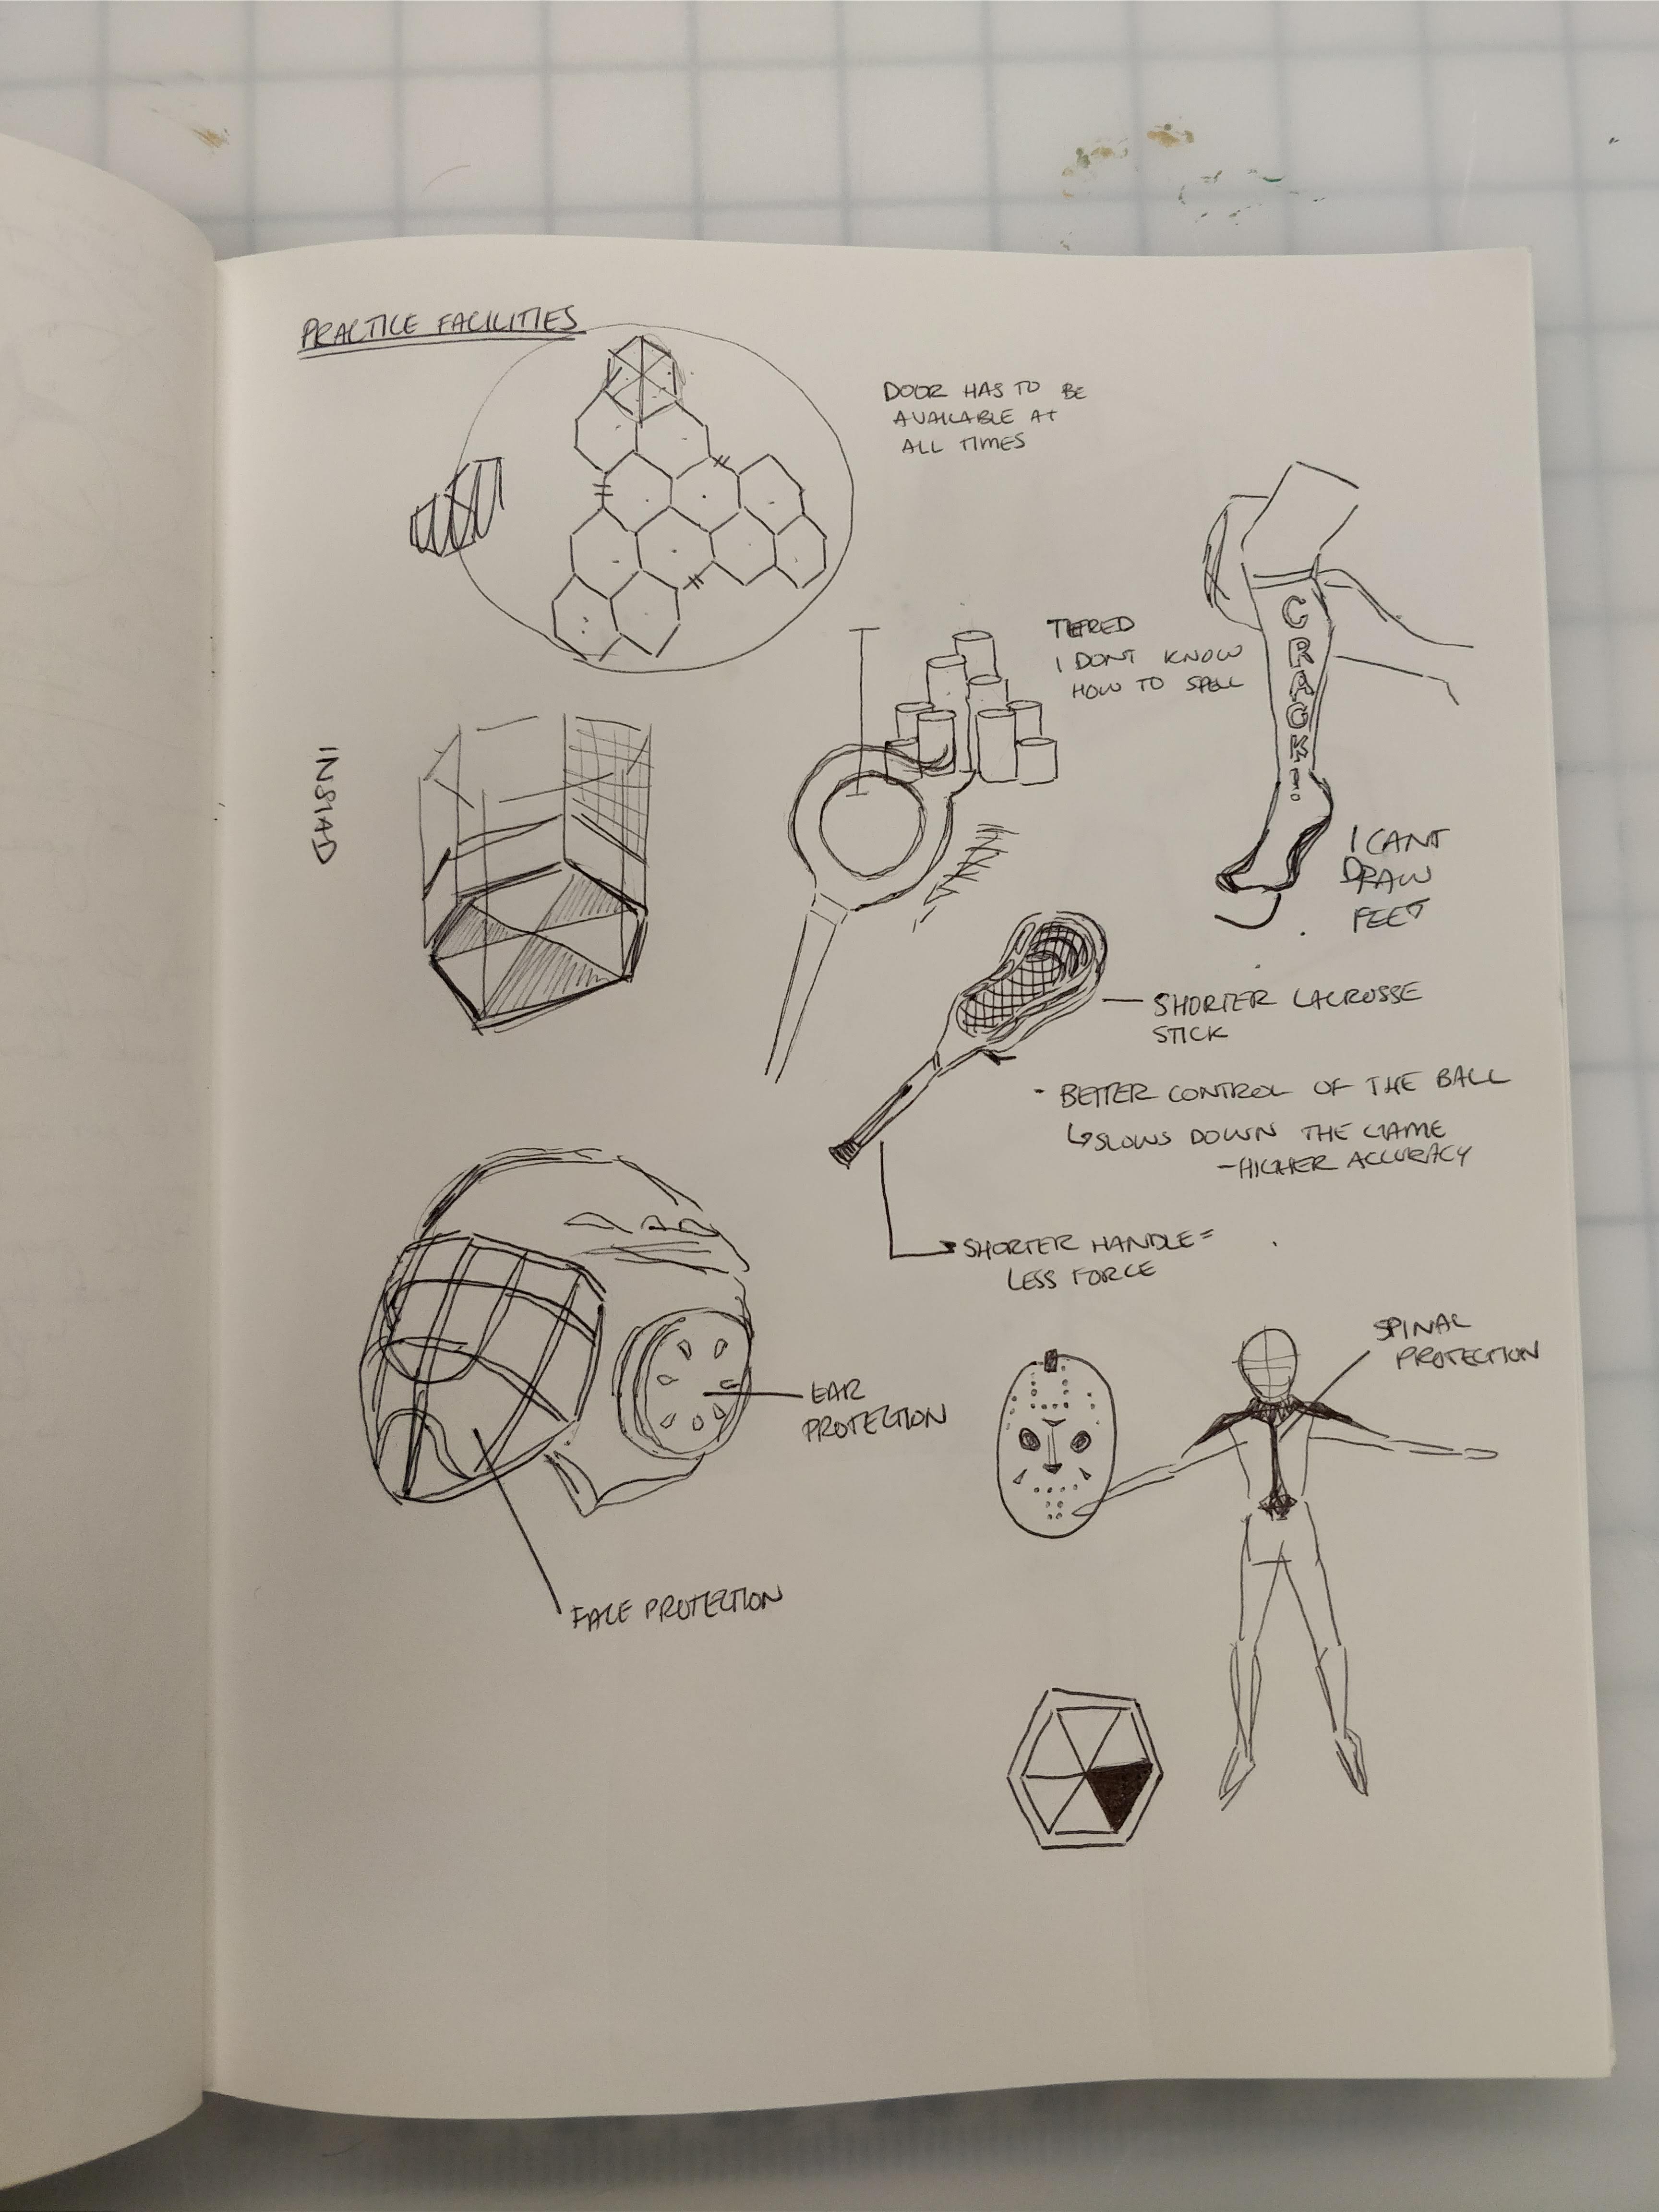 PRACTICE FACILITIES
DOOR HAS TO BE
AVAILABLE AT
ALL TIMES
TIERED
I DONT KNOW
HOW TO SPELL
CRACK!
I CANT
DRAW
FEET
SHORTER LACROSSE
STICK
- BETTER CONTROL OF THE BALL
↳ SLOWS DOWN THE GAME
- HIGHER ACCURACY
SHORTER HANDLE =
LESS FORCE
SPINAL
PROTECTION
EAR
PROTECTION
FACE PROTECTION